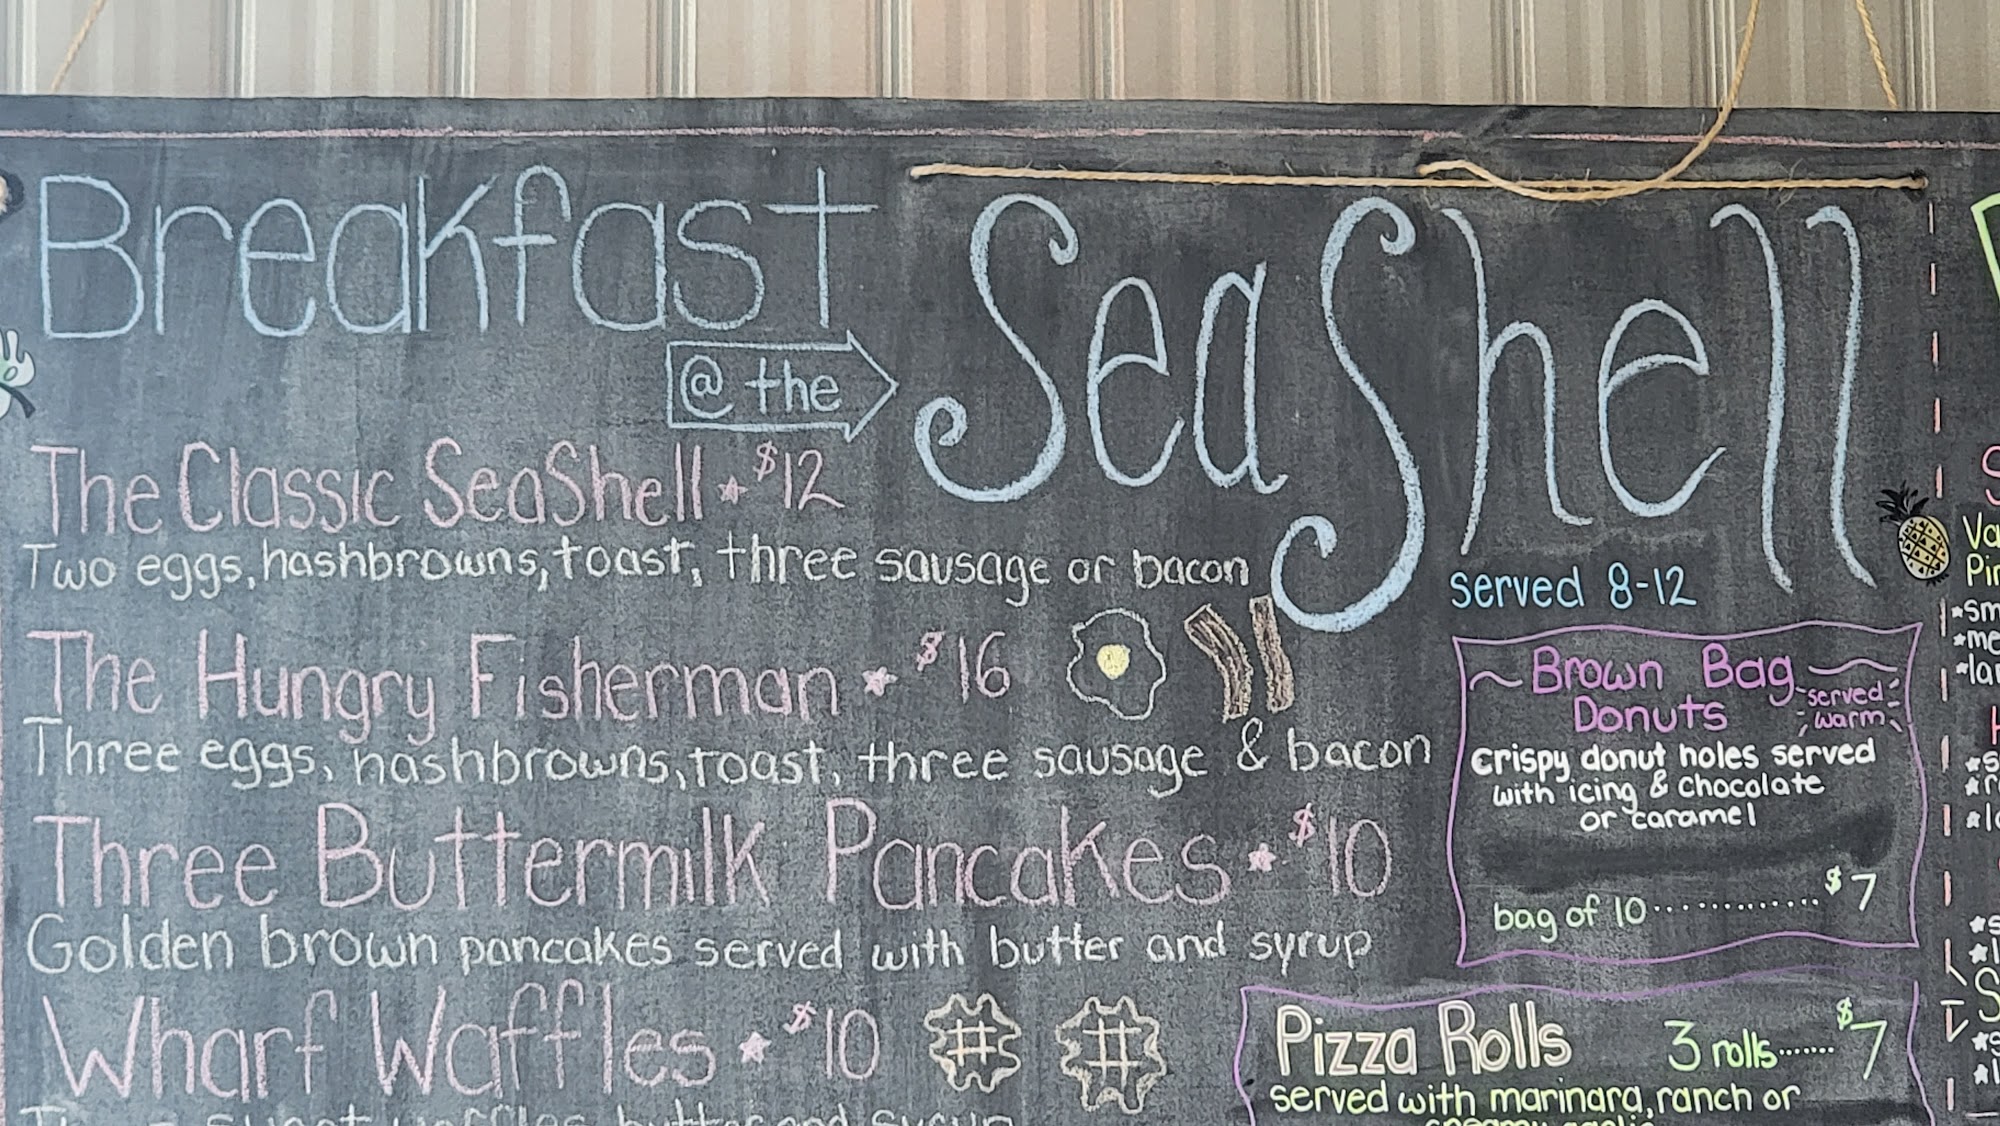 Breakfast
@ the
SeaShell
served 8-12
The Classic SeaShell ★ $12
Two eggs, hashbrowns, toast, three sausage or bacon
The Hungry Fisherman ★ $16
Three eggs, hashbrowns, toast, three sausage & bacon
Three Buttermilk Pancakes ★ $10
Golden brown pancakes served with butter and syrup
Wharf Waffles ★ $10
waffles butter and syrup
Brown Bag
Donuts
served
warm
crispy donut holes served
with icing & chocolate
or caramel
bag of 10.............$7
Pizza Rolls 3 rolls.......$7
served with marinara, ranch or
creamy garlic